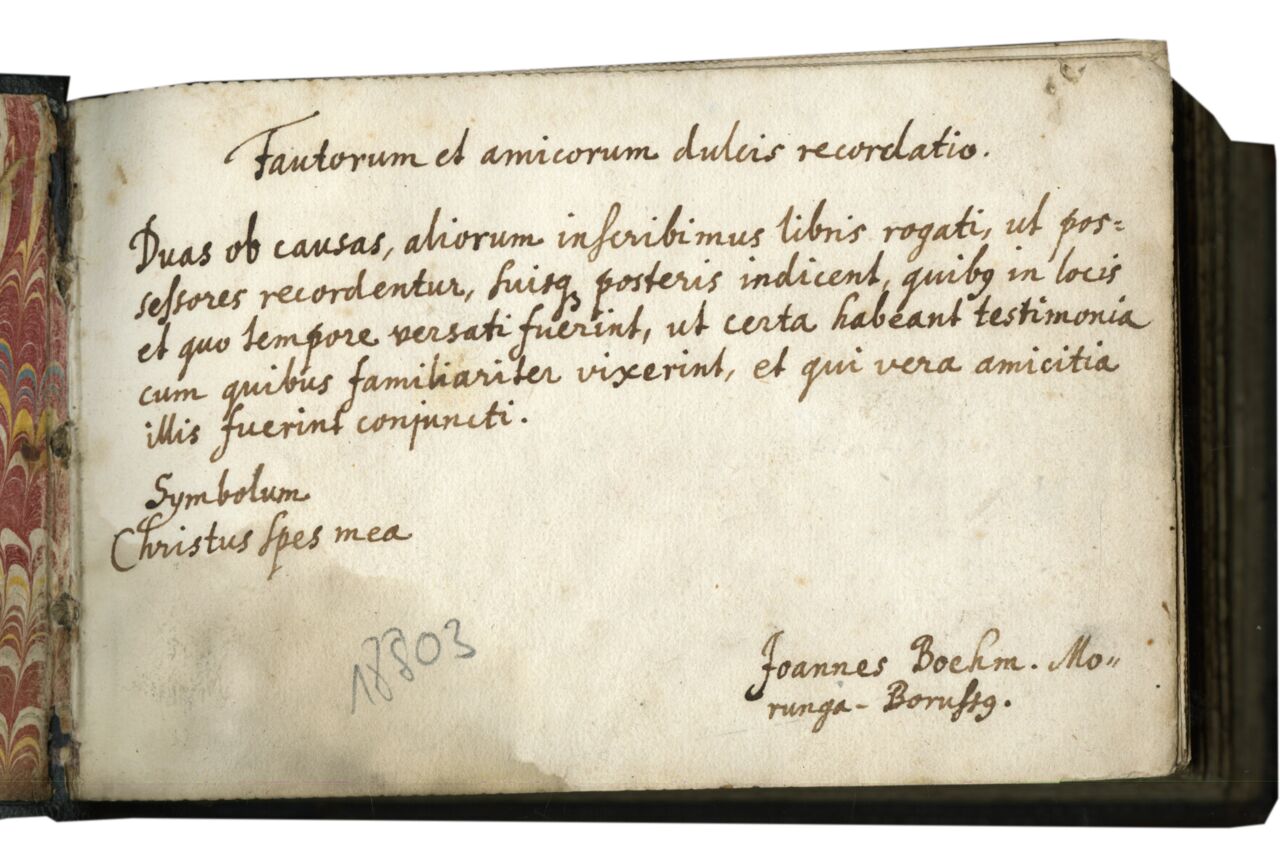 Fautorum et amicorum dulcis recordatio.
Duas ob causas, aliorum inſcribimus libris rogati, ut poſ=
seſsores recordentur, ſuisqꝫ posteris indicent, quibꝰ in locis
et quo tempore versati fuerint, ut certa habeant testimonia
cum quibus familiariter vixerint, et qui vera amicitia
illis fuerint conjuncti.
Symbolum
Christus ſpes mea
18803
Joannes Boehm. Mo=
runga-Boruſsꝰ.